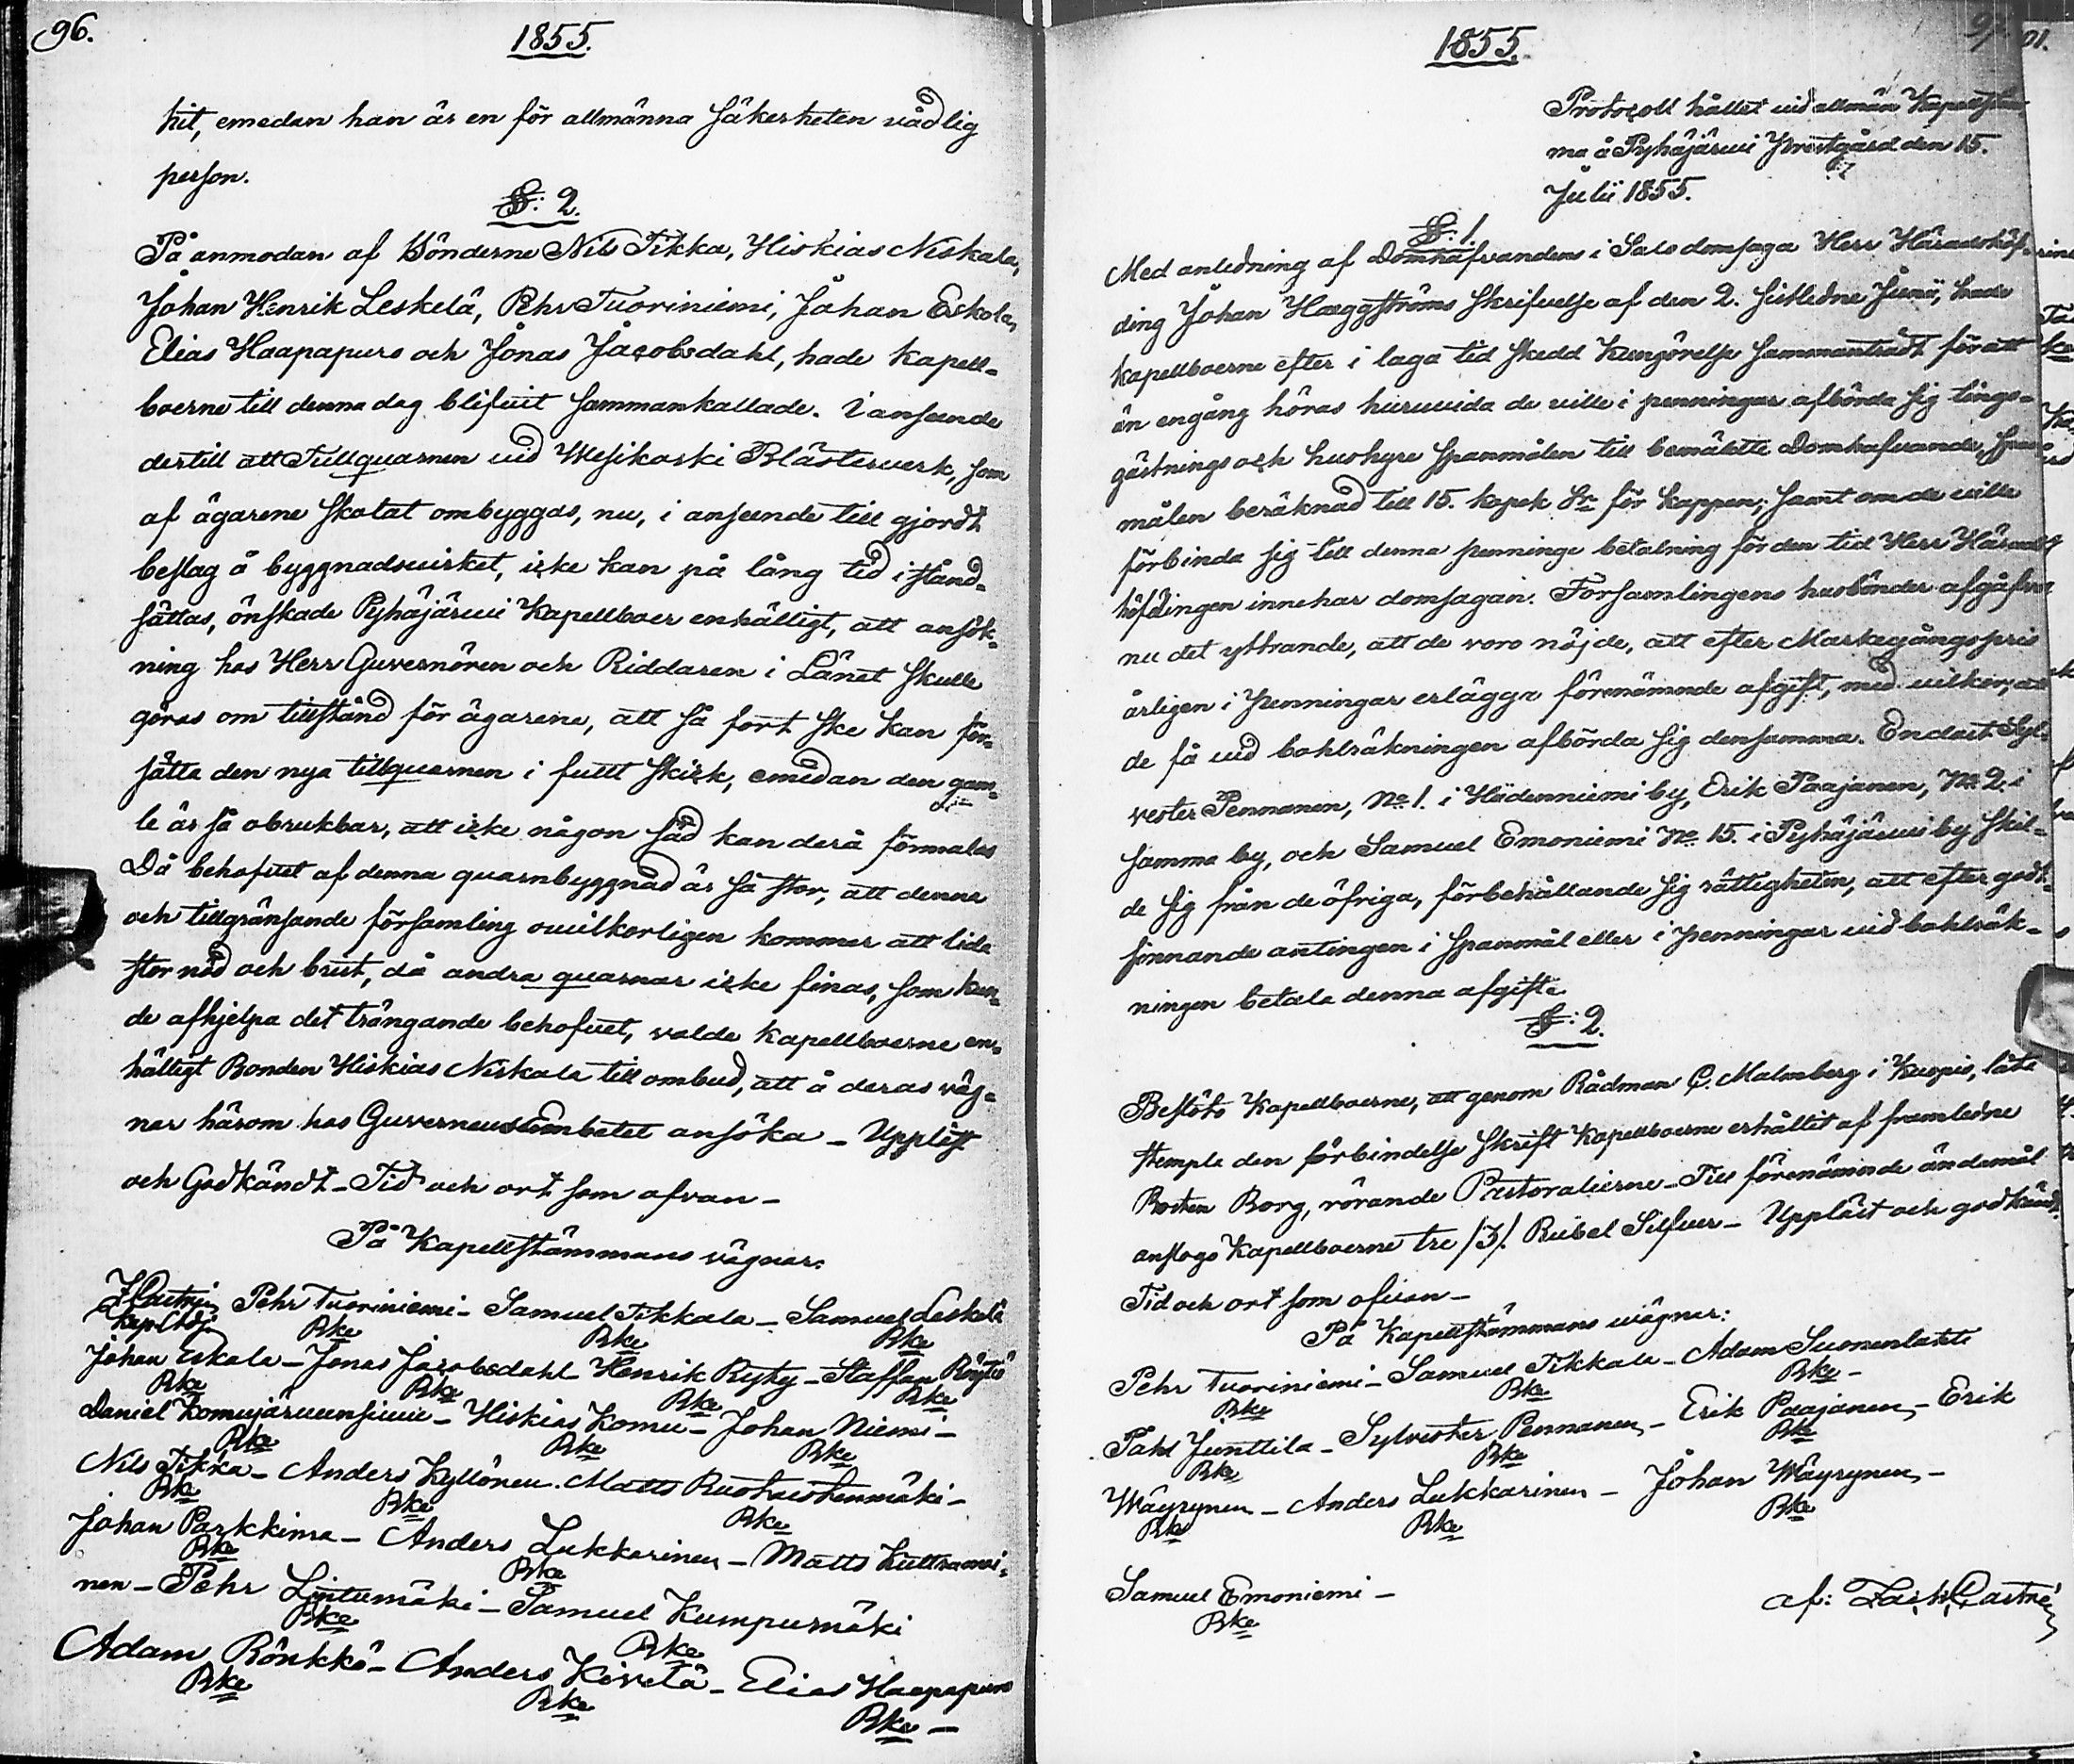 96.
1855.
hit, emedan han är en för allmänna säkerheten vådlig
person.
§: 2.
På anmodan af Bönderne Nils Tikka, Hiskias Niskala,
Johan Henrik Leskelä, Pehr Tuoriniemi, Johan Eskola,
Elias Haapapuro och Jonas Jacobsdahl, hade kapell-
boerne till denna dag blifvit sammankallade. I anseende
dertill att Tullquarnen vid Wesikoski Blästerverk, som
af ägarene skolat ombyggas, nu, i anseende till gjordt
beslag å byggnadsvirket, icke kan på lång tid i stånd-
sättas, önskade Pyhäjärvi Kapellboer enhälligt, att ansök-
ning hos Herr Guvernören och Riddaren i Länet skulle
göras om tillstånd för ägarene, att så fort ske kan för-
sätta den nya tullquarnen i fullt skick, emedan den gam-
le är så obrukbar, att icke någon säd kan derå förmalas
Då behofvet af denna quarnbyggnad är så stor, att denna
och tillgränsande församling ovilkorligen kommer att lida
stor nöd och brist, då andra quarnar icke finas, som kun-
de afhjelpa det trängande behofvet, valde kapellboerne en-
hälligt Bonden Hiskias Niskala till ombud, att å deras väg-
nar härom hos Guverneursembetet ansöka – Uppläst
och Godkändt – Tid och ort som ofvan –
På Kapellstämmans vägnar:
Pehr Tuoriniemi – Samuel Tikkala – Samuel Leskelä
Bke Bke Bke
Johan Eskola – Jonas Jacobsdahl – Henrik Ryty – Staffan Röytiö
Bke Bke Bke Bke
Daniel Komujärvensivu – Hiskias Komu – Johan Niemi –
Bke Bke Bke
Nils Tikka – Anders Kyllönen. Matts Ruotoistenmäki –
Bke Bke Bke
Johan Parkkima – Anders Lukkarinen – Matts
Bke Bke
nen – Pehr Lintumäki – Samuel Kumpumäki
Bke Bke
Adam Rönkkö – Anders Kivelä – Elias Haapapuro
Bke Bke Bke –
97.
1855.
Protocoll hållet vid allmän Kapellstäm-
ma å Pyhäjärvi Prestgård den 15.
Julii 1855.
§: 1.
Med anledning af Domhafvandens i Salo domsaga Herr Häradshöf-
ding Johan Hæggströms skrifvelse af den 2. sistledne Junii, hade
kapellboerne efter i laga tid skedd kungörelse sammanträdt för att
än engång höras huruvida de ville i penningar afbörda sig tings-
gästnings och hushyre spanmålen till bemälte Domhafvande, span-
målen beräknad till 15. kopek Sr för kappen; samt om de ville
förbinda sig till denna penninge betalning för den tid Herr Härads-
höfdingen innehar domsagan. Församlingens husbönder afgåfvo
nu det yttrande, att de voro nöjde, att efter Markegångspris
årligen i penningar erlägga förenämnde afgift, med vilkor, att
de få vid bohlräkningen afbörda sig densamma. Endast Syl-
vester Pennanen, No. 1. i Hiidenniemi by, Erik Paajanen, No 2. i
samma by, och Samuel Emoniemi No. 15. i Pyhäjärvi by skil-
de sig från de öfriga, förbehållande sig rättigheten, att efter godt-
finnande antingen i spanmål eller i penningar vid bohlräk-
ningen betala denna afgift.
§: 2.
Beslöto Kapellboerne, att genom Rådman C. Malmberg i Kuopio, låta
stempla den förbindelse skrift Kapellboerne erhållit af framledne
Prosten Borg, rörande Pastoralierne – Till förenämnde ändamål
anslogo Kapellboerne tre /3/. Rubel Silfver – Uppläst och godkändt.
Tid och ort som ofvan –
På Kapellstämmans vägnar:
Pehr Tuoriniemi – Samuel Tikkala – Adam Suonenlahti
Bke Bke Bke –
Pahl Junttila – Sylvester Pennanen – Erik Paajanen – Erik
Bke Bke Bke
Wäyrynen – Anders Lukkarinen – Johan Wäyrynen –
Bke Bke Bke
Samuel Emoniemi –
Bke
af: Zach. Castrén